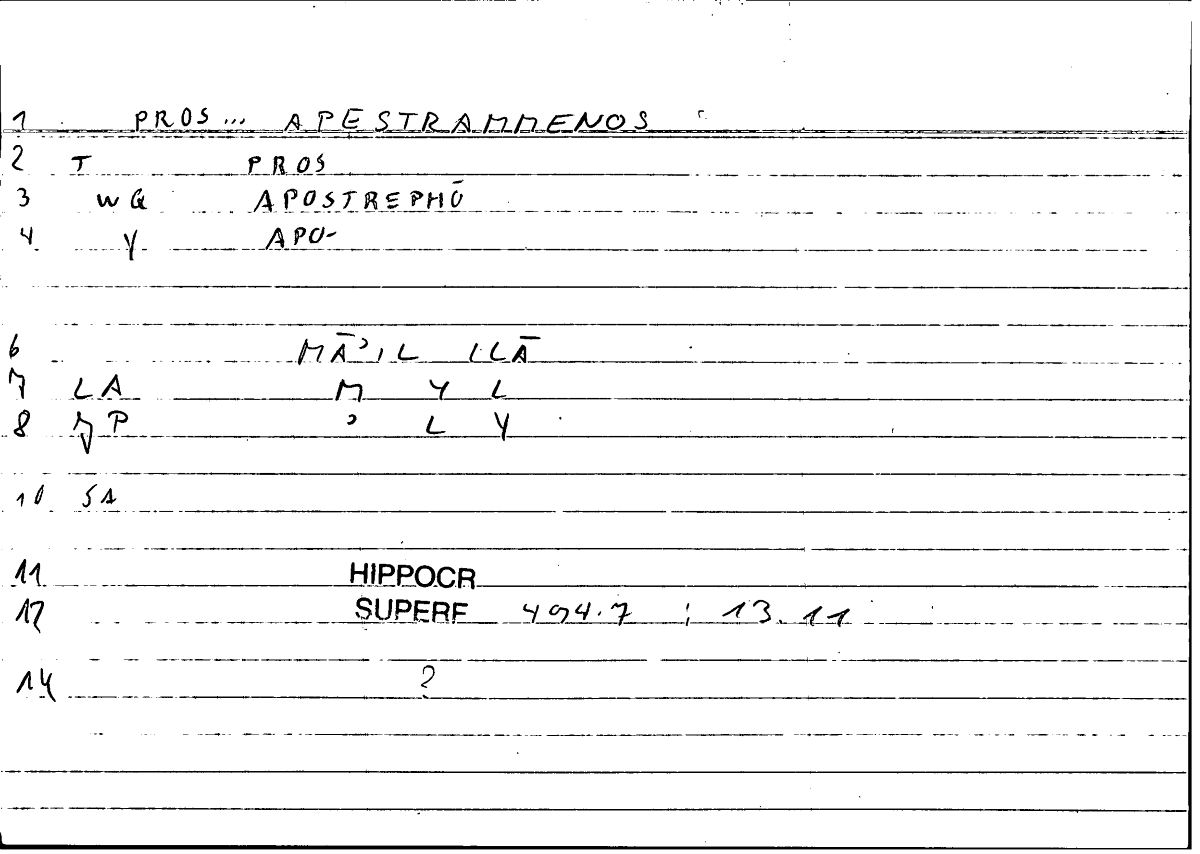 1 PROS... APESTRAMMENOS
2 T PROS
3 WG APOSTREPHŌ
4 Y APO-
6 MĀʾIL ILĀ
7 LA M Y L
8 P ʾ L Y
10 SA
11 HIPPOCR
12 SUPERF 494.7 ; 13.11
14 ?